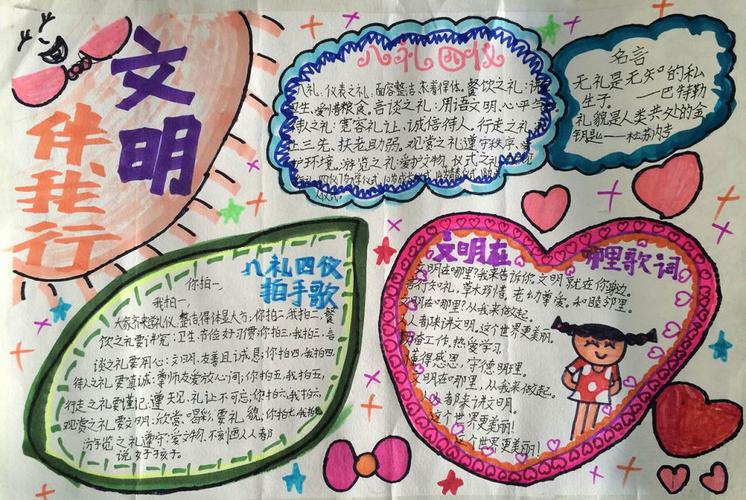 文明
伴我行
八礼四仪
八礼:仪表之礼:面容整洁.衣着得体。餐饮之礼:讲
卫生,爱惜粮食。言谈之礼:用语文明,心平
待人之礼:宽容礼让,诚信待人。行走之礼
让三先,扶老助弱。观赏之礼遵守秩序,
护环境,游览之礼.爱护文物,仪式之礼
名言
无礼是无知的私
生子。 ——巴特勒
礼貌是人类共处的金
钥匙——松苏内吉
八礼四仪
拍手歌
你拍一,
我拍一,
大家齐来学礼仪,整洁得体显大方;你拍二我拍二,餐
饮之礼要讲究;卫生、节俭好习惯你拍三,我拍三,言
谈之礼要用心:文明、友善且诚恳;你拍四,我拍四
待人之礼要真诚;尊师友爱放心间;你拍五,我拍五,
行走之礼要谨记;遵 礼让不可忘;你拍六,我拍六,
观赏之礼要文明:欣赏、喝彩要礼貌,你拍七,我拍
游览之礼遵守,爱文物,不刻画人人都
说好孩子。
文明在 哪里歌词
文明在哪里?我来告诉你,文明就在你身边。
言行知礼,草木珍惜,老幼尊爱。和睦邻里。
文明在哪里?从我来做起。
人都来讲文明,这个世界更美丽。
勤奋工作,热爱学习,
懂得感恩,守德明理。
文明在哪里,从我来做起。
人都来讲文明。
这个世界更美丽!
这个世界更美丽!